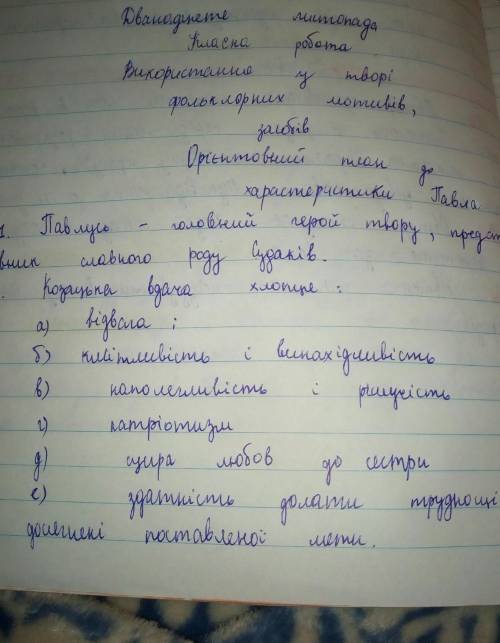 Дванадцяте листопада
Класна робота
Використання у творі
фольклорних мотивів,
засобів
Орієнтовний план до
характеристики Павла
1. Павлусь – головний герой твору, предст
вник славного роду Судаків.
. Козацька вдача хлопця:
а) відвага;
б) кмітливість і винахідливість
в) наполегливість і рішучість
г) патріотизм
д) щира любов до сестри
є) здатність долати труднощі
досягнені поставленої мети.